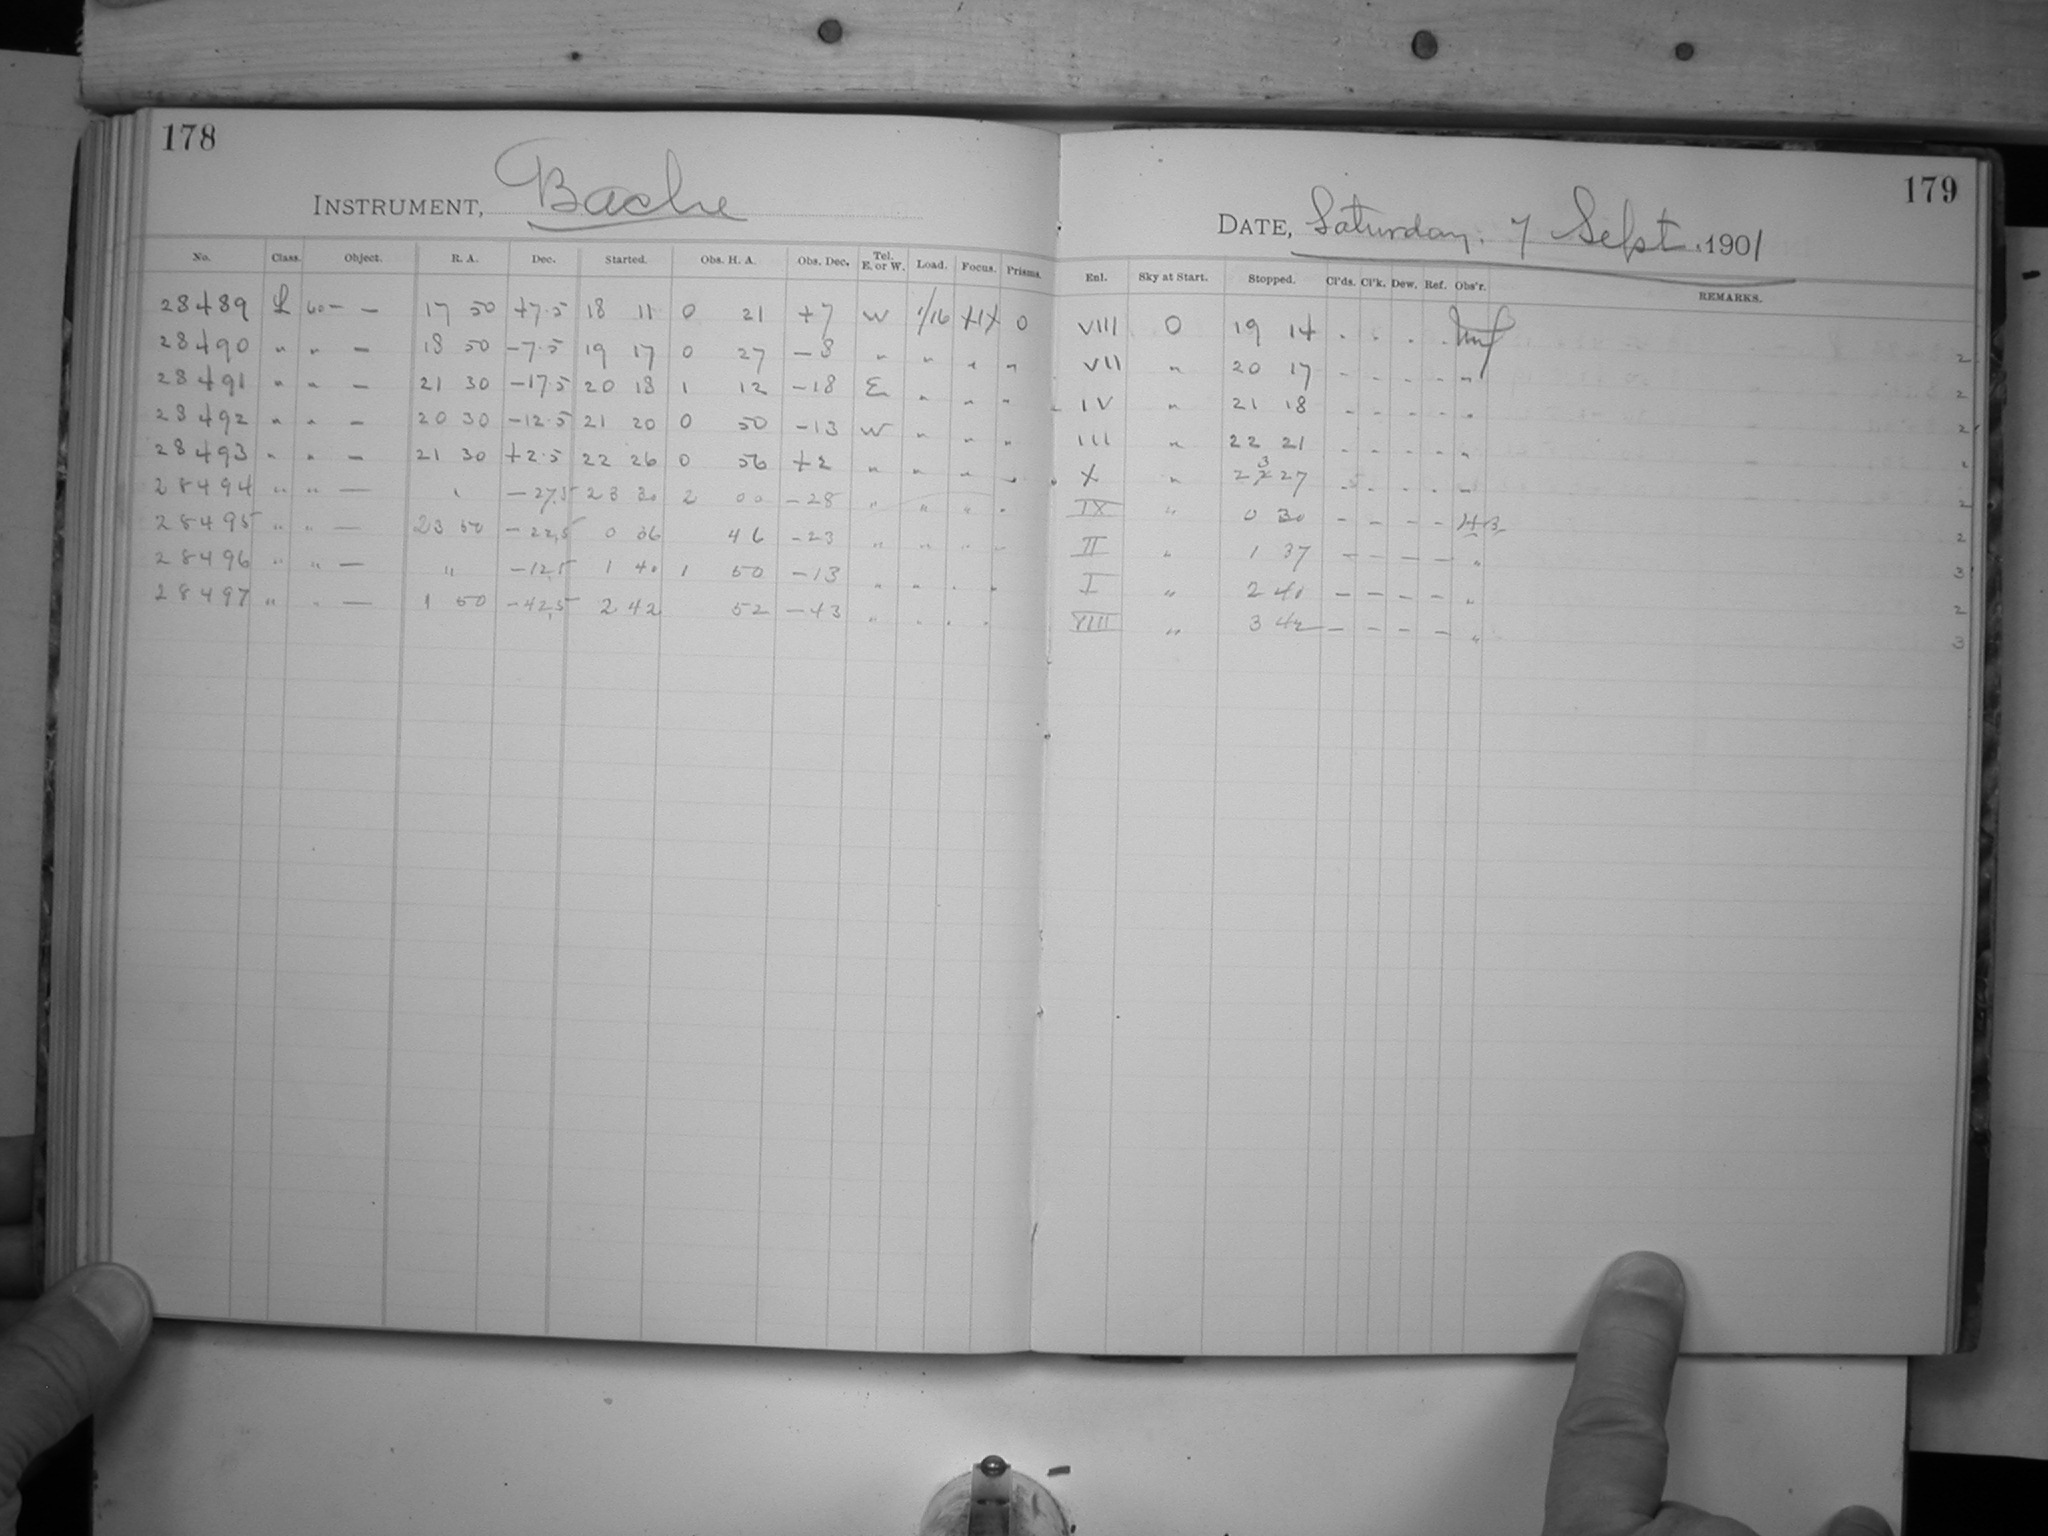 178
INSTRUMENT, Bache
No. Class. Object. R. A. Dec. Started. Obs. H. A. Obs. Dec. Tel. E. or W. Load. Focus. Prisms.
28489 L 60 – – 17 50 +7.5 18 11 0 21 +7 W 1/16 0
28490 " " – 18 50 –7.5 19 17 0 27 –8 " " " "
28491 " " – 21 30 –17.5 20 18 1 12 –18 E " " "
28492 " " – 20 30 –12.5 21 20 0 50 –13 W " " "
28493 " " – 21 30 +2.5 22 26 0 56 +2 " " " "
28494 " " — " –27.5 23 30 2 00 –28 " " " "
28495 " " — 23 50 –22.5 0 36 46 –23 " " " "
28496 " " — " –12.5 1 40 1 50 –13 " " " "
28497 " " — 1 50 –42.5 2 42 52 –43 " " " "
179
DATE, Saturday, 7 Sept. 1901
Enl. Sky at Start. Stopped. Cl'ds. Cl'k. Dew. Ref. Obs'r. REMARKS.
VIII 0 19 14 . . . . 2
VII " 20 17 – – – – " 2
IV " 21 18 – – – – " 2
III " 22 21 – – – – "
X " 23 27 – – – – " 2
IX " 0 30 – – – – 2
II " 1 37 – – – – " 3
I " 2 40 – – – – " 2
VIII " 3 42 – – – – " 3